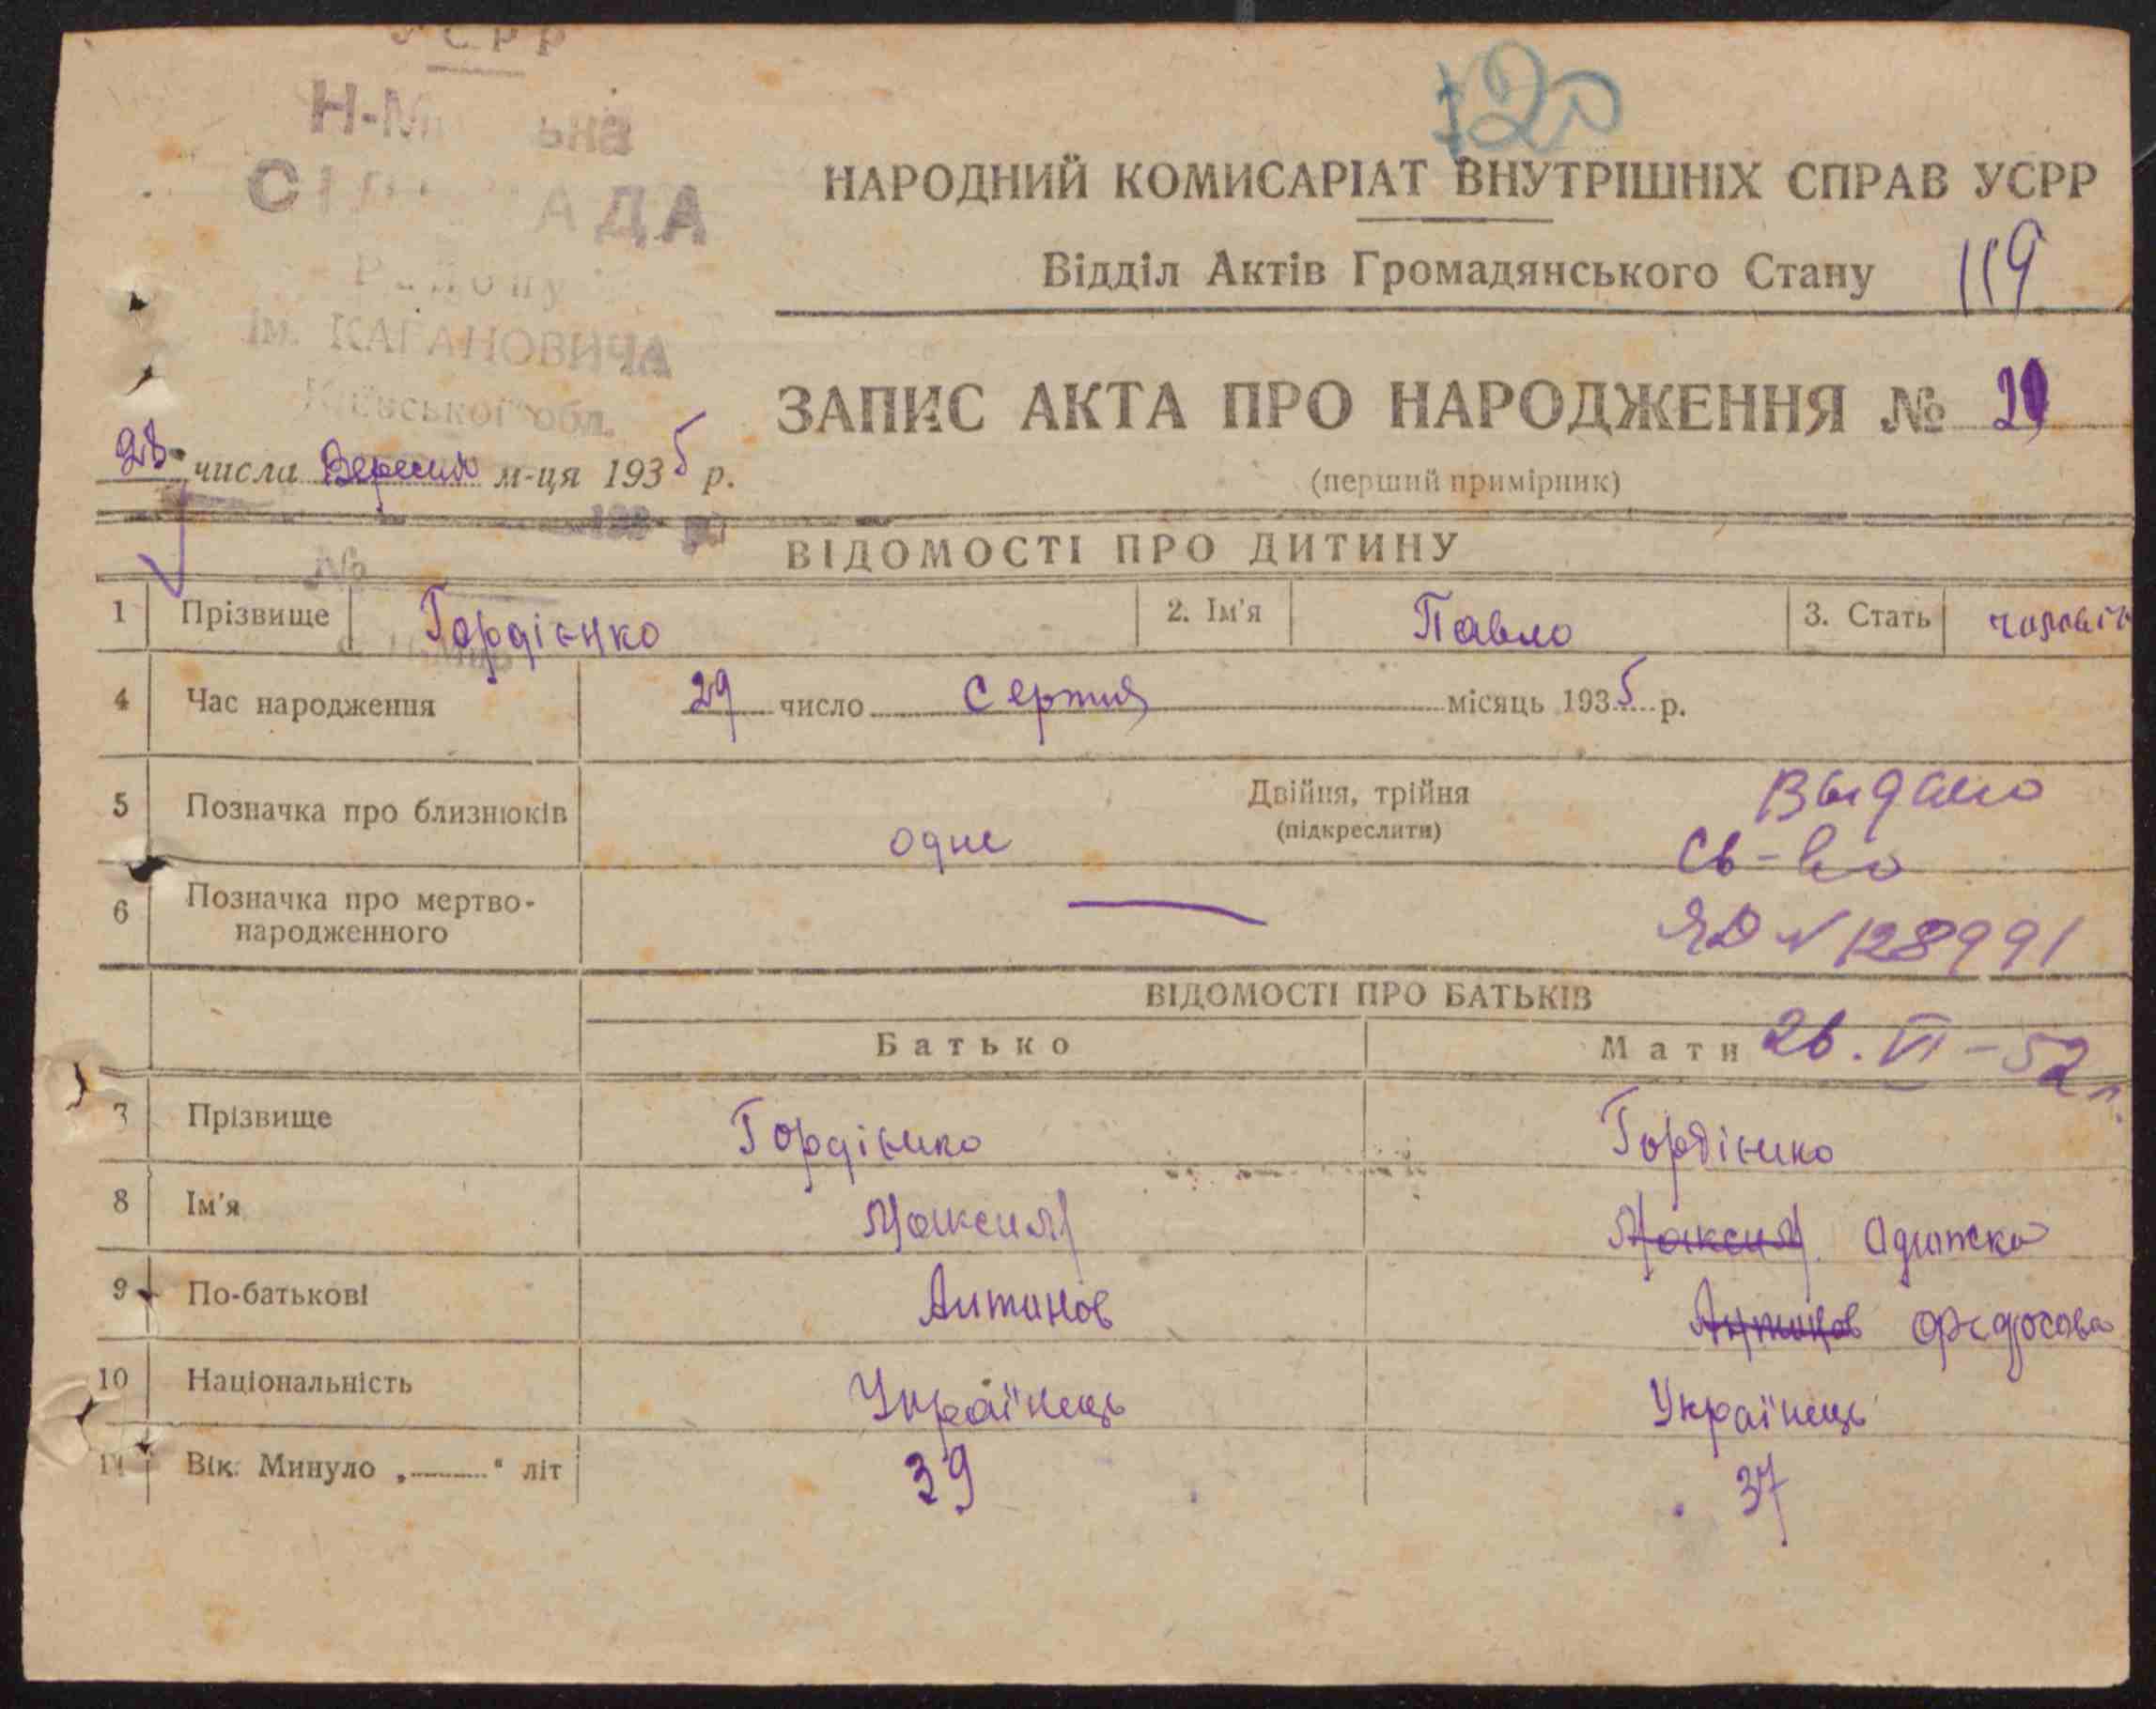 УСРР
120
НАРОДНИЙ КОМИСАРІАТ ВНУТРІШНІХ СПРАВ УСРР
Відділ Актів Громадянського Стану 119
Району
ім. КАГАНОВИЧА
Київської обл.
ЗАПИС АКТА ПРО НАРОДЖЕННЯ № 29
28 числа Вересня м-ця 1935 р.
(перший примірник)
ВІДОМОСТІ ПРО ДИТИНУ
№
1 Прізвище Гордієнко 2. Ім'я Павло 3. Стать чоловіч
4 Час народження 29 число Серпня місяць 1935 р.
5 Позначка про близнюків одне Двійня, трійня (підкреслити)
Выдано
св-во
6 Позначка про мертво-народженного —
ЯО N 128991
ВІДОМОСТІ ПРО БАТЬКІВ
Батько Мати
26. VI - 52 г.
7 Прізвище Гордієнко Гордієнко
8 Ім'я Максим Максим
9 По-батькові Антинов Антинов Федосова
10 Національність Українець Українець
11 Вік. Минуло „ “ літ 39 37